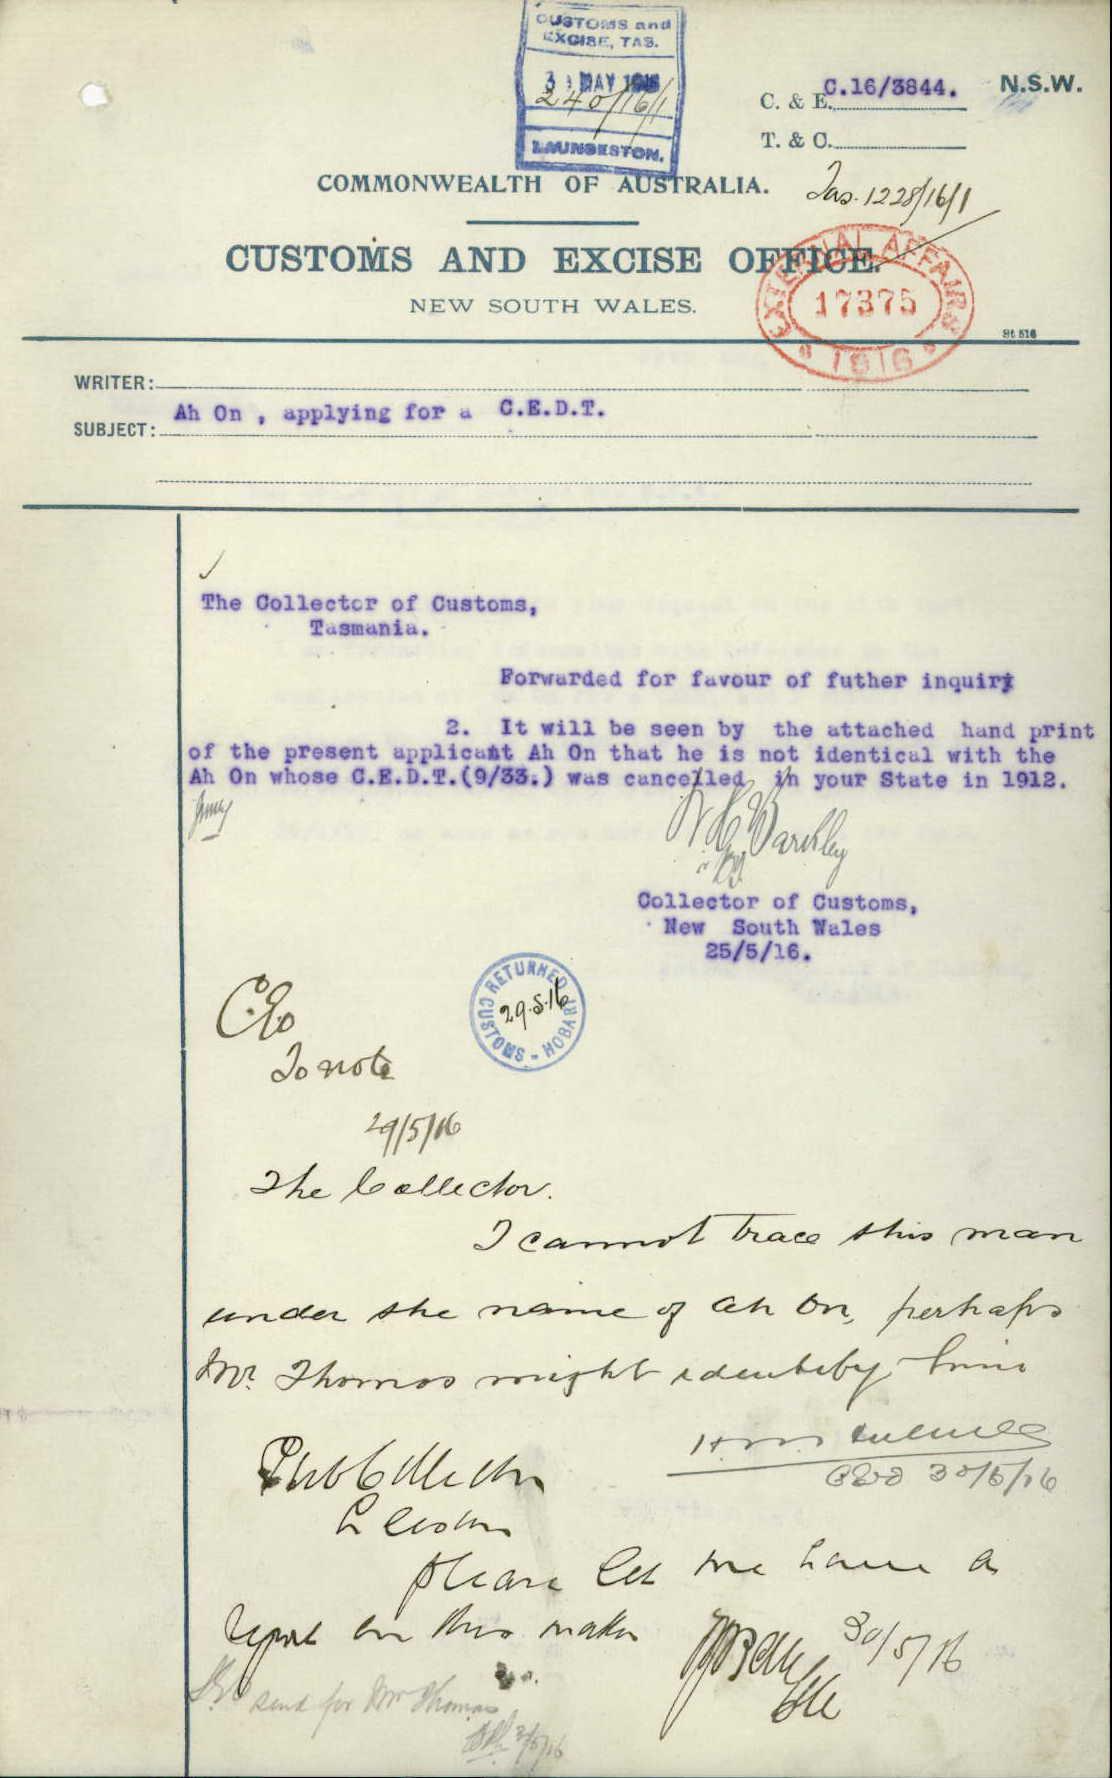 CUSTOMS and
EXCISE, TAS.
MAY 1916
240/16/1
LAUNCESTON.
C. & E. C.16/3844.
N.S.W.
T. & C.
COMMONWEALTH OF AUSTRALIA.
Tas. 1228/16/1
CUSTOMS AND EXCISE OFFICE.
NEW SOUTH WALES.
EXTERNAL AFFAIRS
17375
1916
St. 516
WRITER:
SUBJECT: Ah On , applying for a C.E.D.T.
The Collector of Customs,
Tasmania.
Forwarded for favour of futher inquiry
2. It will be seen by the attached hand print
of the present applicant Ah On that he is not identical with the
Ah On whose C.E.D.T.(9/33.) was cancelled in your State in 1912.
Collector of Customs,
New South Wales
25/5/16.
RETURNED
29.5.16
CUSTOMS - HOBART
To note
29/5/16
The Collector.
I cannot trace this man
under the name of Ah On, perhaps
Mr. Thomas might identify him
30/5/16
Please let me have a
report on this matter
30/5/16
send for Mr Thomas